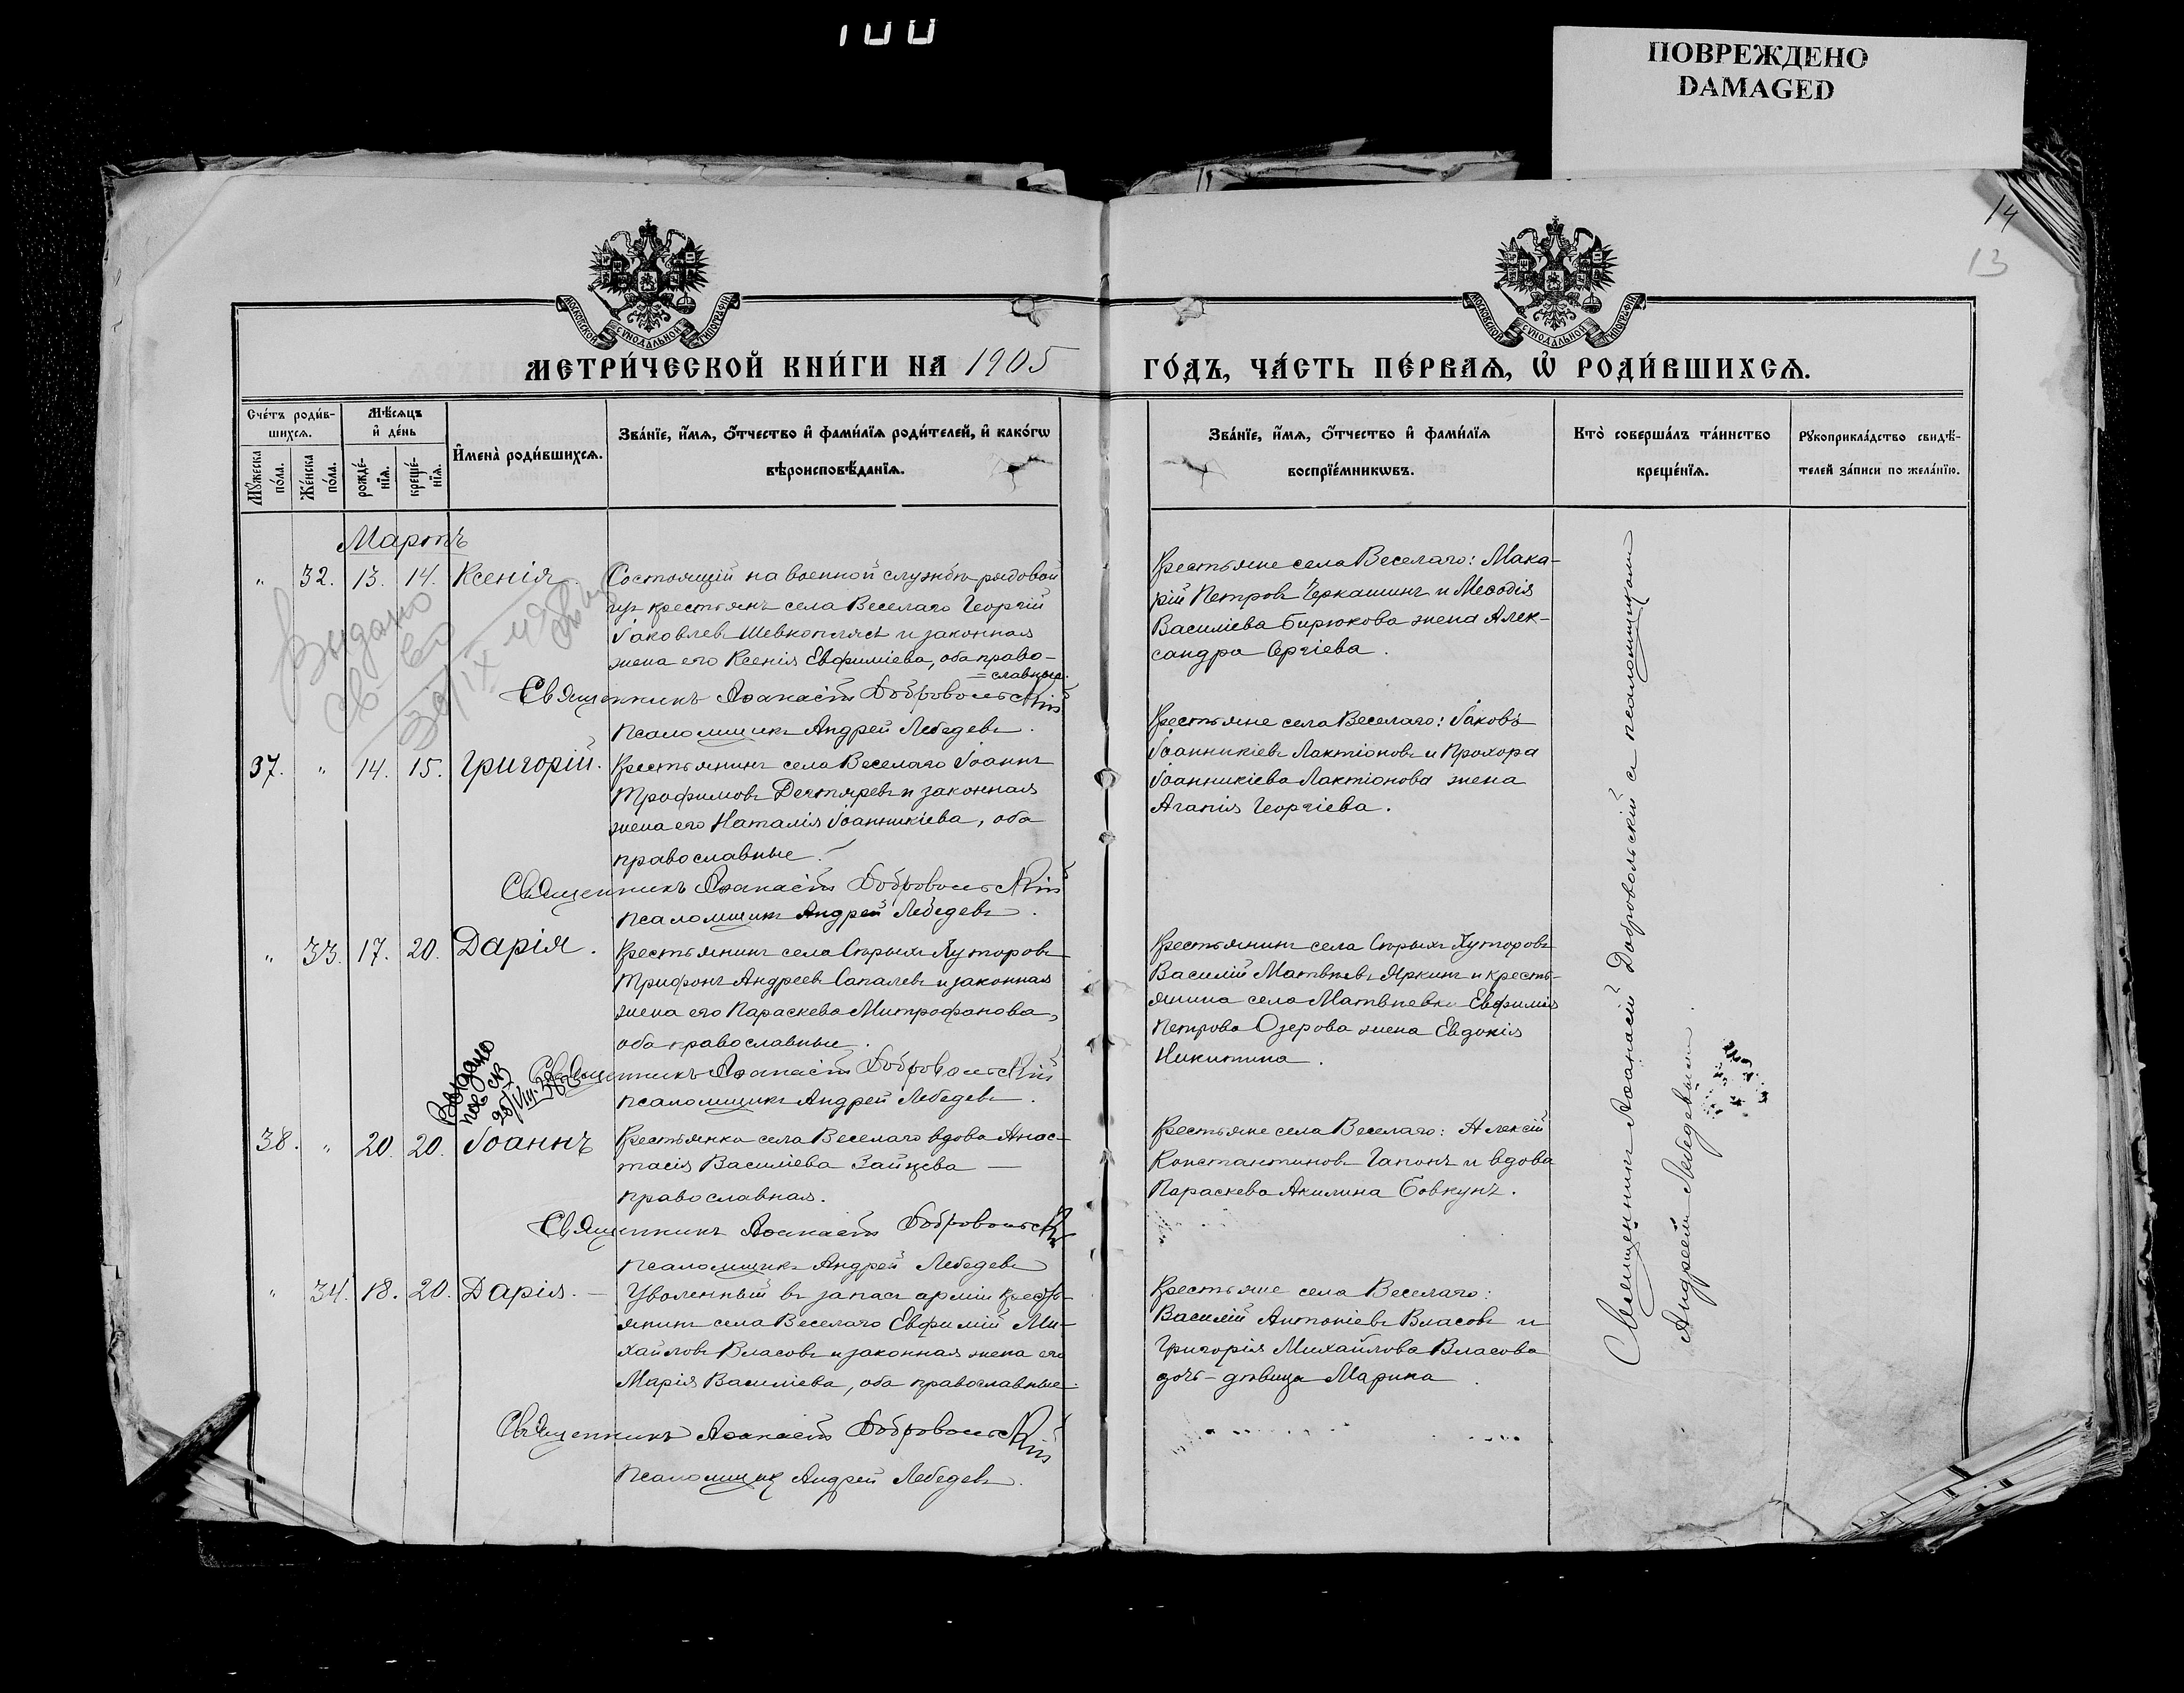 100
ПОВРЕЖДЕНО
DAMAGED
14
13
МОСКОВСКОЙ СѴНОДАЛЬНОЙ ТИПОГРАФІИ
МОСКОВСКОЙ СѴНОДАЛЬНОЙ ТИПОГРАФІИ
МЕТРИ́ЧЕСКОЙ КНИ́ГИ НА 1905
ГО́ДЪ, ЧА́СТЬ ПЕ́РВАѦ, Ѽ РОДИ́ВШИХСѦ.
Сче́тъ роди́в-
шихсѧ.
Мѣ́сѧцъ
и҆ де́нь
Мꙋ́жеска
по́ла.
Же́нска
по́ла.
рожде́-
нїѧ.
креще́-
нїѧ.
И҆мена̀ роди́вшихсѧ.
Зва́нїе, и҆́мѧ, ѻ҆́тчество и҆ фами́лїѧ роди́телей, и҆ како́гѡ
вѣроисповѣ́данїѧ.
Зва́нїе, и҆́мѧ, ѻ҆́тчество и҆ фами́лїѧ
воспрїе́мникѡвъ.
Кто̀ соверша́лъ та́инство
креще́нїѧ.
Рꙋкоприкла́дство свидѣ́-
телей за́писи по жела́нїю.
Мартъ
" 32. 13. 14. Ксенія.
Состоящій на военной службѣ рядовой
изъ крестьянъ села Веселаго Георгій
Іаковлевъ Шевкоплясъ и законная
жена его Ксенія Евфиміева, оба право-
=славные.
Священникъ Аѳанасій Добровольскій
Псаломщикъ Андрей Лебедевъ.
Крестьяне села Веселаго: Мака-
рій Петровъ Черкашинъ и Меѳодія
Василіева Бирюкова жена Алек-
сандра Сергіева.
Выдано
св-во
30/IX
37. " 14. 15. Григорій.
Крестьянинъ села Веселаго Іоаннъ
Трофимовъ Дегтяревъ и законная
жена его Наталія Іоанникіева, оба
православные.
Священникъ Аѳанасій Добровольскій
Псаломщикъ Андрей Лебедевъ.
Крестьяне села Веселаго: Іаковъ
Іоанникіевъ Лактіоновъ и Прохора
Іоанникіева Лактіонова жена
Агапія Георгіева.
" 33. 17. 20. Дарія.
Крестьянинъ села Сѣрыхъ Хуторовъ
Трифонъ Андреевъ Сапалевъ и законная
жена его Параскева Митрофанова,
оба православные.
Священникъ Аѳанасій Добровольскій
Псаломщикъ Андрей Лебедевъ.
Крестьянинъ села Сѣрыхъ Хуторовъ
Василій Матвѣевъ Яркинъ и кресть-
янина села Матвѣевки Евфимія
Петрова Озерова жена Евдокія
Никитина.
Выдано
38. " 20. 20. Іоаннъ
Крестьянка села Веселаго вдова Анас-
тасія Василіева Зайцева —
православная.
Священникъ Аѳанасій Добровольскій
Псаломщикъ Андрей Лебедевъ
Крестьяне села Веселаго: Алексій
Константиновъ Гапонъ и вдова
Параскева Акилина Бовкунъ.
" 34. 18. 20. Дарія. —
Уволенный въ запасъ арміи кресть-
янинъ села Веселаго Евфимій Ми-
хайловъ Власовъ и законная жена его
Марія Василіева, оба православные.
Священникъ Аѳанасій Добровольскій
Псаломщикъ Андрей Лебедевъ.
Крестьяне села Веселаго:
Василій Антоніевъ Власовъ и
Григорія Михайлова Власова
дочь-дѣвица Марина.
Священникъ Аѳанасій Добровольскій съ псаломщикомъ
Андреемъ Лебедевымъ.